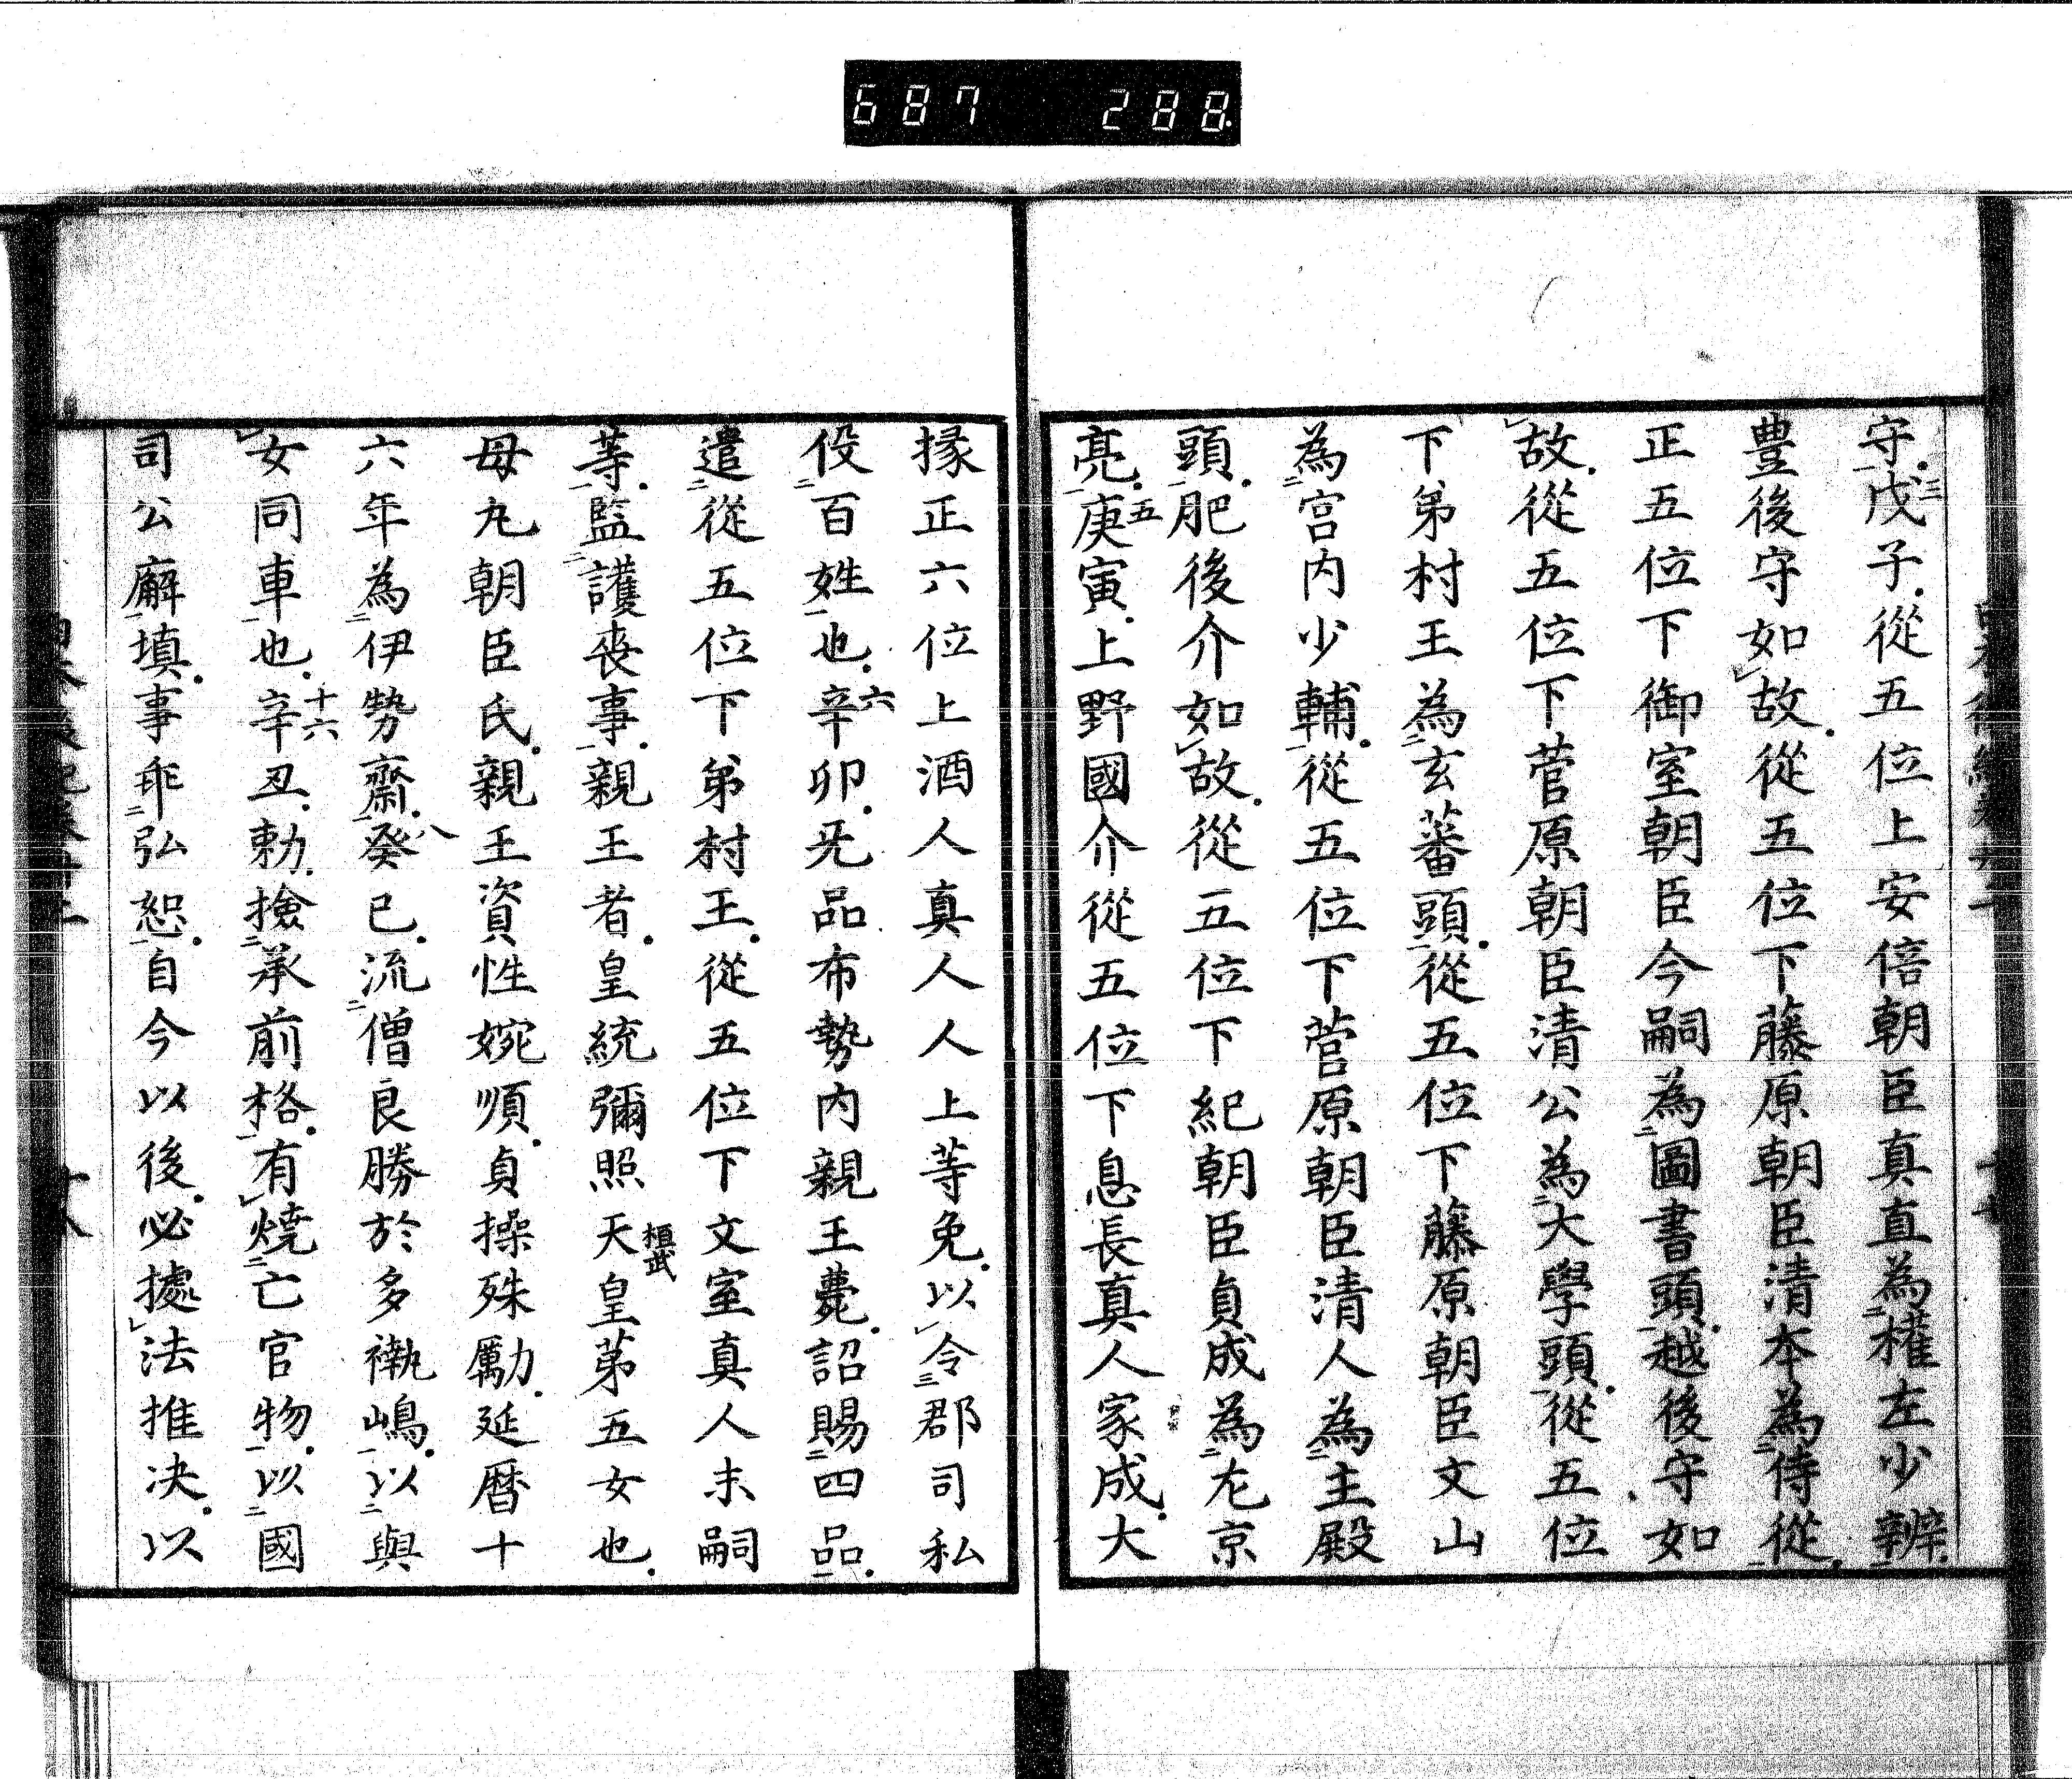 687 288
守戊子從五位上安倍朝臣真直為權左少辨
三
豊後守如故從五位下藤原朝臣清本為侍從
正五位下御室朝臣今嗣為圖書頭越後守如
故從五位下菅原朝臣清公為大學頭從五位
下第村王為玄蕃頭從五位下藤原朝臣文山
為宮内少輔從五位下菅原朝臣清人為主殿
頭肥後介如故從五位下紀朝臣貞成為左京
亮庚寅上野國介從五位下息長真人家成大
五
掾正六位上酒人真人人上等免以令郡司私
役百姓也辛卯旡品布勢内親王薨詔賜四品
六
遣從五位下第村王從五位下文室真人末嗣
等監護丧事親王者皇統彌照天皇第五女也
桓武
母丸朝臣氏親王資性婉順貞操殊勵延曆十
六年為伊勢齋癸巳流僧良勝於多褹嶋以與
八
女同車也辛丑勅撿承前格有燒亡官物以國
十六
司公廨填事乖弘恕自今以後必據法推决以